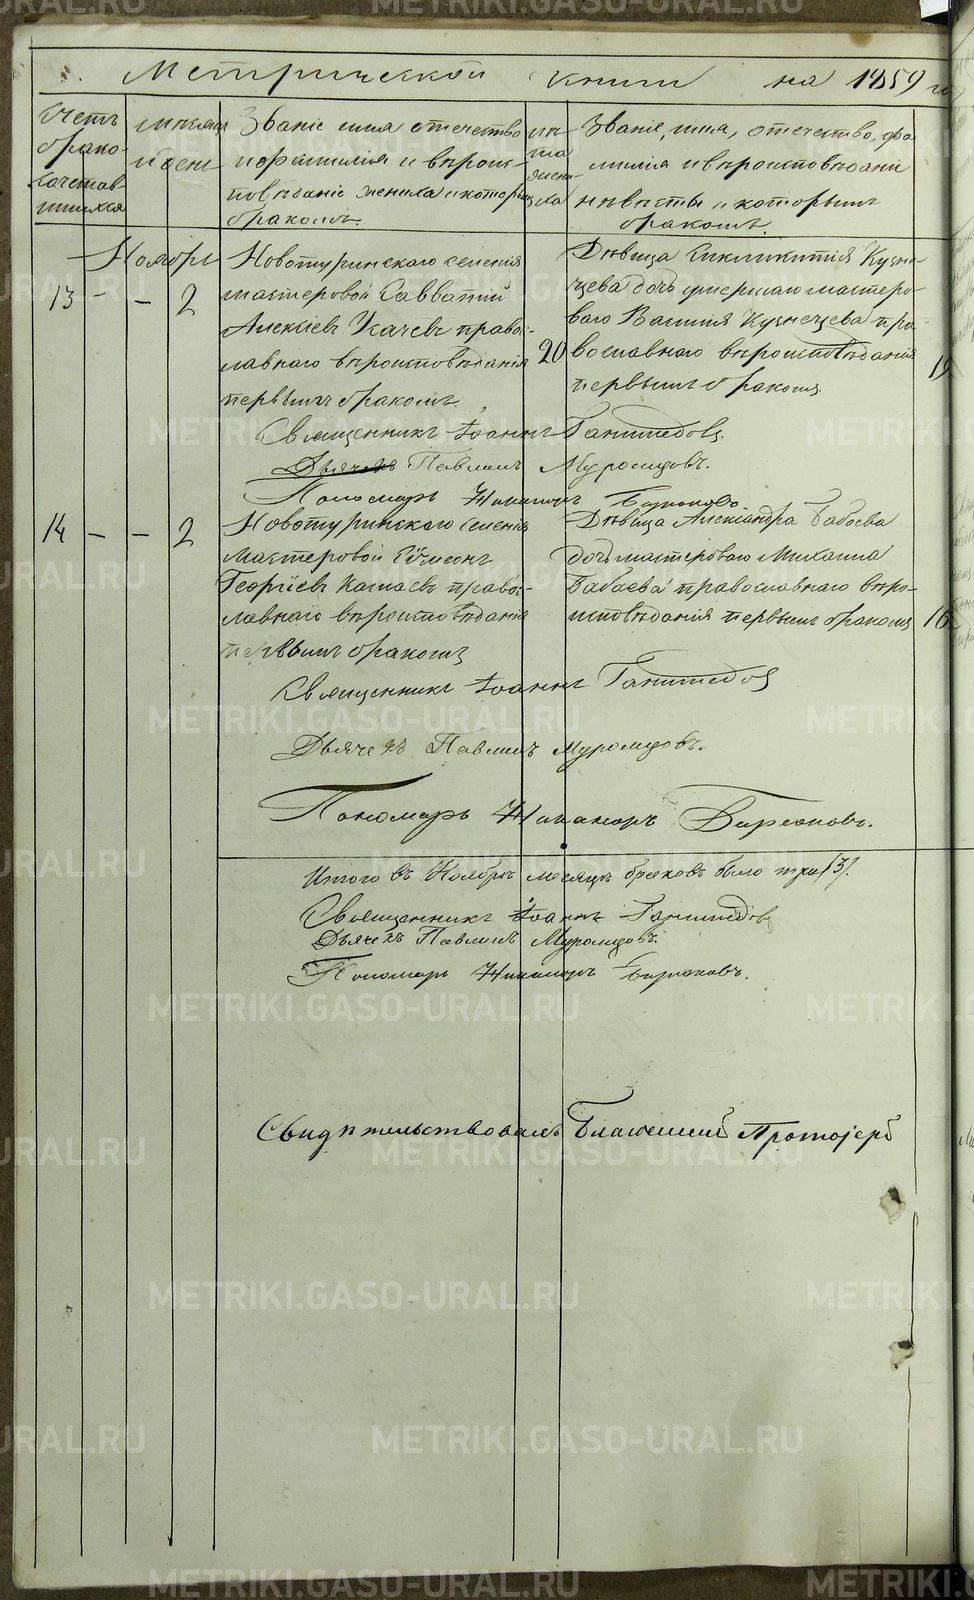 Метрической книги на 1859 го
Счетъ брако-сочетав-шихся
мѣсяцъ и день
Званіе имя отечество и фамилія и вѣроис-повѣданіе жениха и которымъ бракомъ.
лѣта жени-ха
Званіе, имя, отечество, фа-милія и вѣроисповѣданіе невѣсты и которымъ бракомъ.
Ноября
13 - - 2
Новотуринскаго селенія
мастеровой Савватій
Алексѣевъ Укачевъ право-
славнаго вѣроисповѣданія
первымъ бракомъ.
20
Дѣвица Кузне-
цева дочь умершаго мастеро-
ваго Василія Кузнецева пра-
вославнаго вѣроисповѣданія
первымъ бракомъ
19
Священникъ Іоаннъ Ганимедовъ.
Дьячекъ Павлинъ Муромцовъ.
Пономарь Никаноръ Бирюковъ.
14 - - 2
Новотуринскаго селенія
мастеровой Сѵмеонъ
Георгіевъ православ-
лавнаго вѣроисповѣданія
первымъ бракомъ
Дѣвица Александра Бабаева
дочь мастероваго Михаила
Бабаева православнаго вѣро-
исповѣданія первымъ бракомъ
16
Священникъ Іоаннъ Ганимедовъ
Дьячекъ Павлинъ Муромцовъ.
Пономарь Никаноръ Бирюковъ.
Итого въ Ноябрѣ месяцѣ браковъ было три /3/.
Священникъ Іоаннъ Ганимедовъ
Дьячекъ Павлинъ Муромцовъ.
Пономарь Никаноръ Бирюковъ.
Свидѣтельствовалъ Протоіерей
METRIKI.GASO-URAL.RU